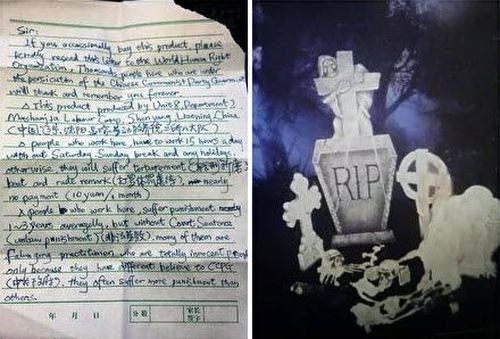 Sir:
If you occassionally buy this product, please
kindly resend this letter to the World Human Right
Organization. Thousands people here who are under
the persicution of the Chinese Communist Party Government
will thank and remember you forever.
This product produced by Unit 8, Department 2,
Masanjia Labour Camp, Shenyang, Liaoning, China
(中国, 辽宁, 沈阳, 马三家劳动教养院二所八大队)
people who work here, have to work 15 hours a day
with out Saturday, Sunday break and any holidays,
otherwise, they will suffer torturement
beat and rude remark nearly
no payment (10 yuan / 1 month)
people who work here, suffer punishment nearly
1~3 years averagelly, but without Court Sentence
(unlaw punishment) many of them are
Falun gong practitioner, who are totally innocent people
only because they have different believe to CCPG
they often suffer more punishment than
others.
年 月 日 分数 家长签字
RIP